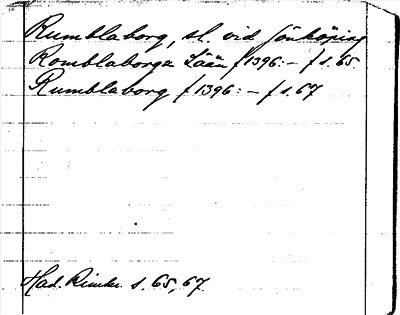 Rumblaborg, sl. vid Jönköping
Romblaborgz Lään f 1396:– f s. 65
Rumblaborg f 1396:– f s. 67
Had. Rimkr. s. 65, 67.